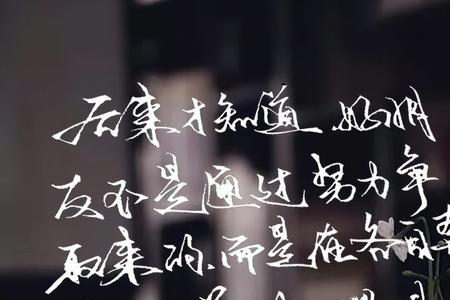 后来才知道、好朋
友不是通过努力争
取来的、而是在各自